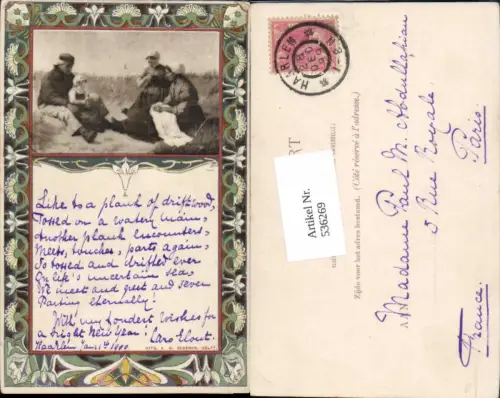 Like to a plank of driftwood,
Tossed on a watery main,
Another plank encounters,
Meets, touches, parts again;
So tossed and drifted ever
On life's uncertain sea,
We meet and greet and sever
Parting eternally!
With my fondest wishes for
a bright New Year! Caro
Haarlem Jan: 1st 1900
HAARLEM
Artikel Nr.
536269
(Côté réservé à l'adresse.)
Zijde voor het adres bestemd.
A Madame Paul M. Abdullahian
3 Rue Royale
Paris.
France.